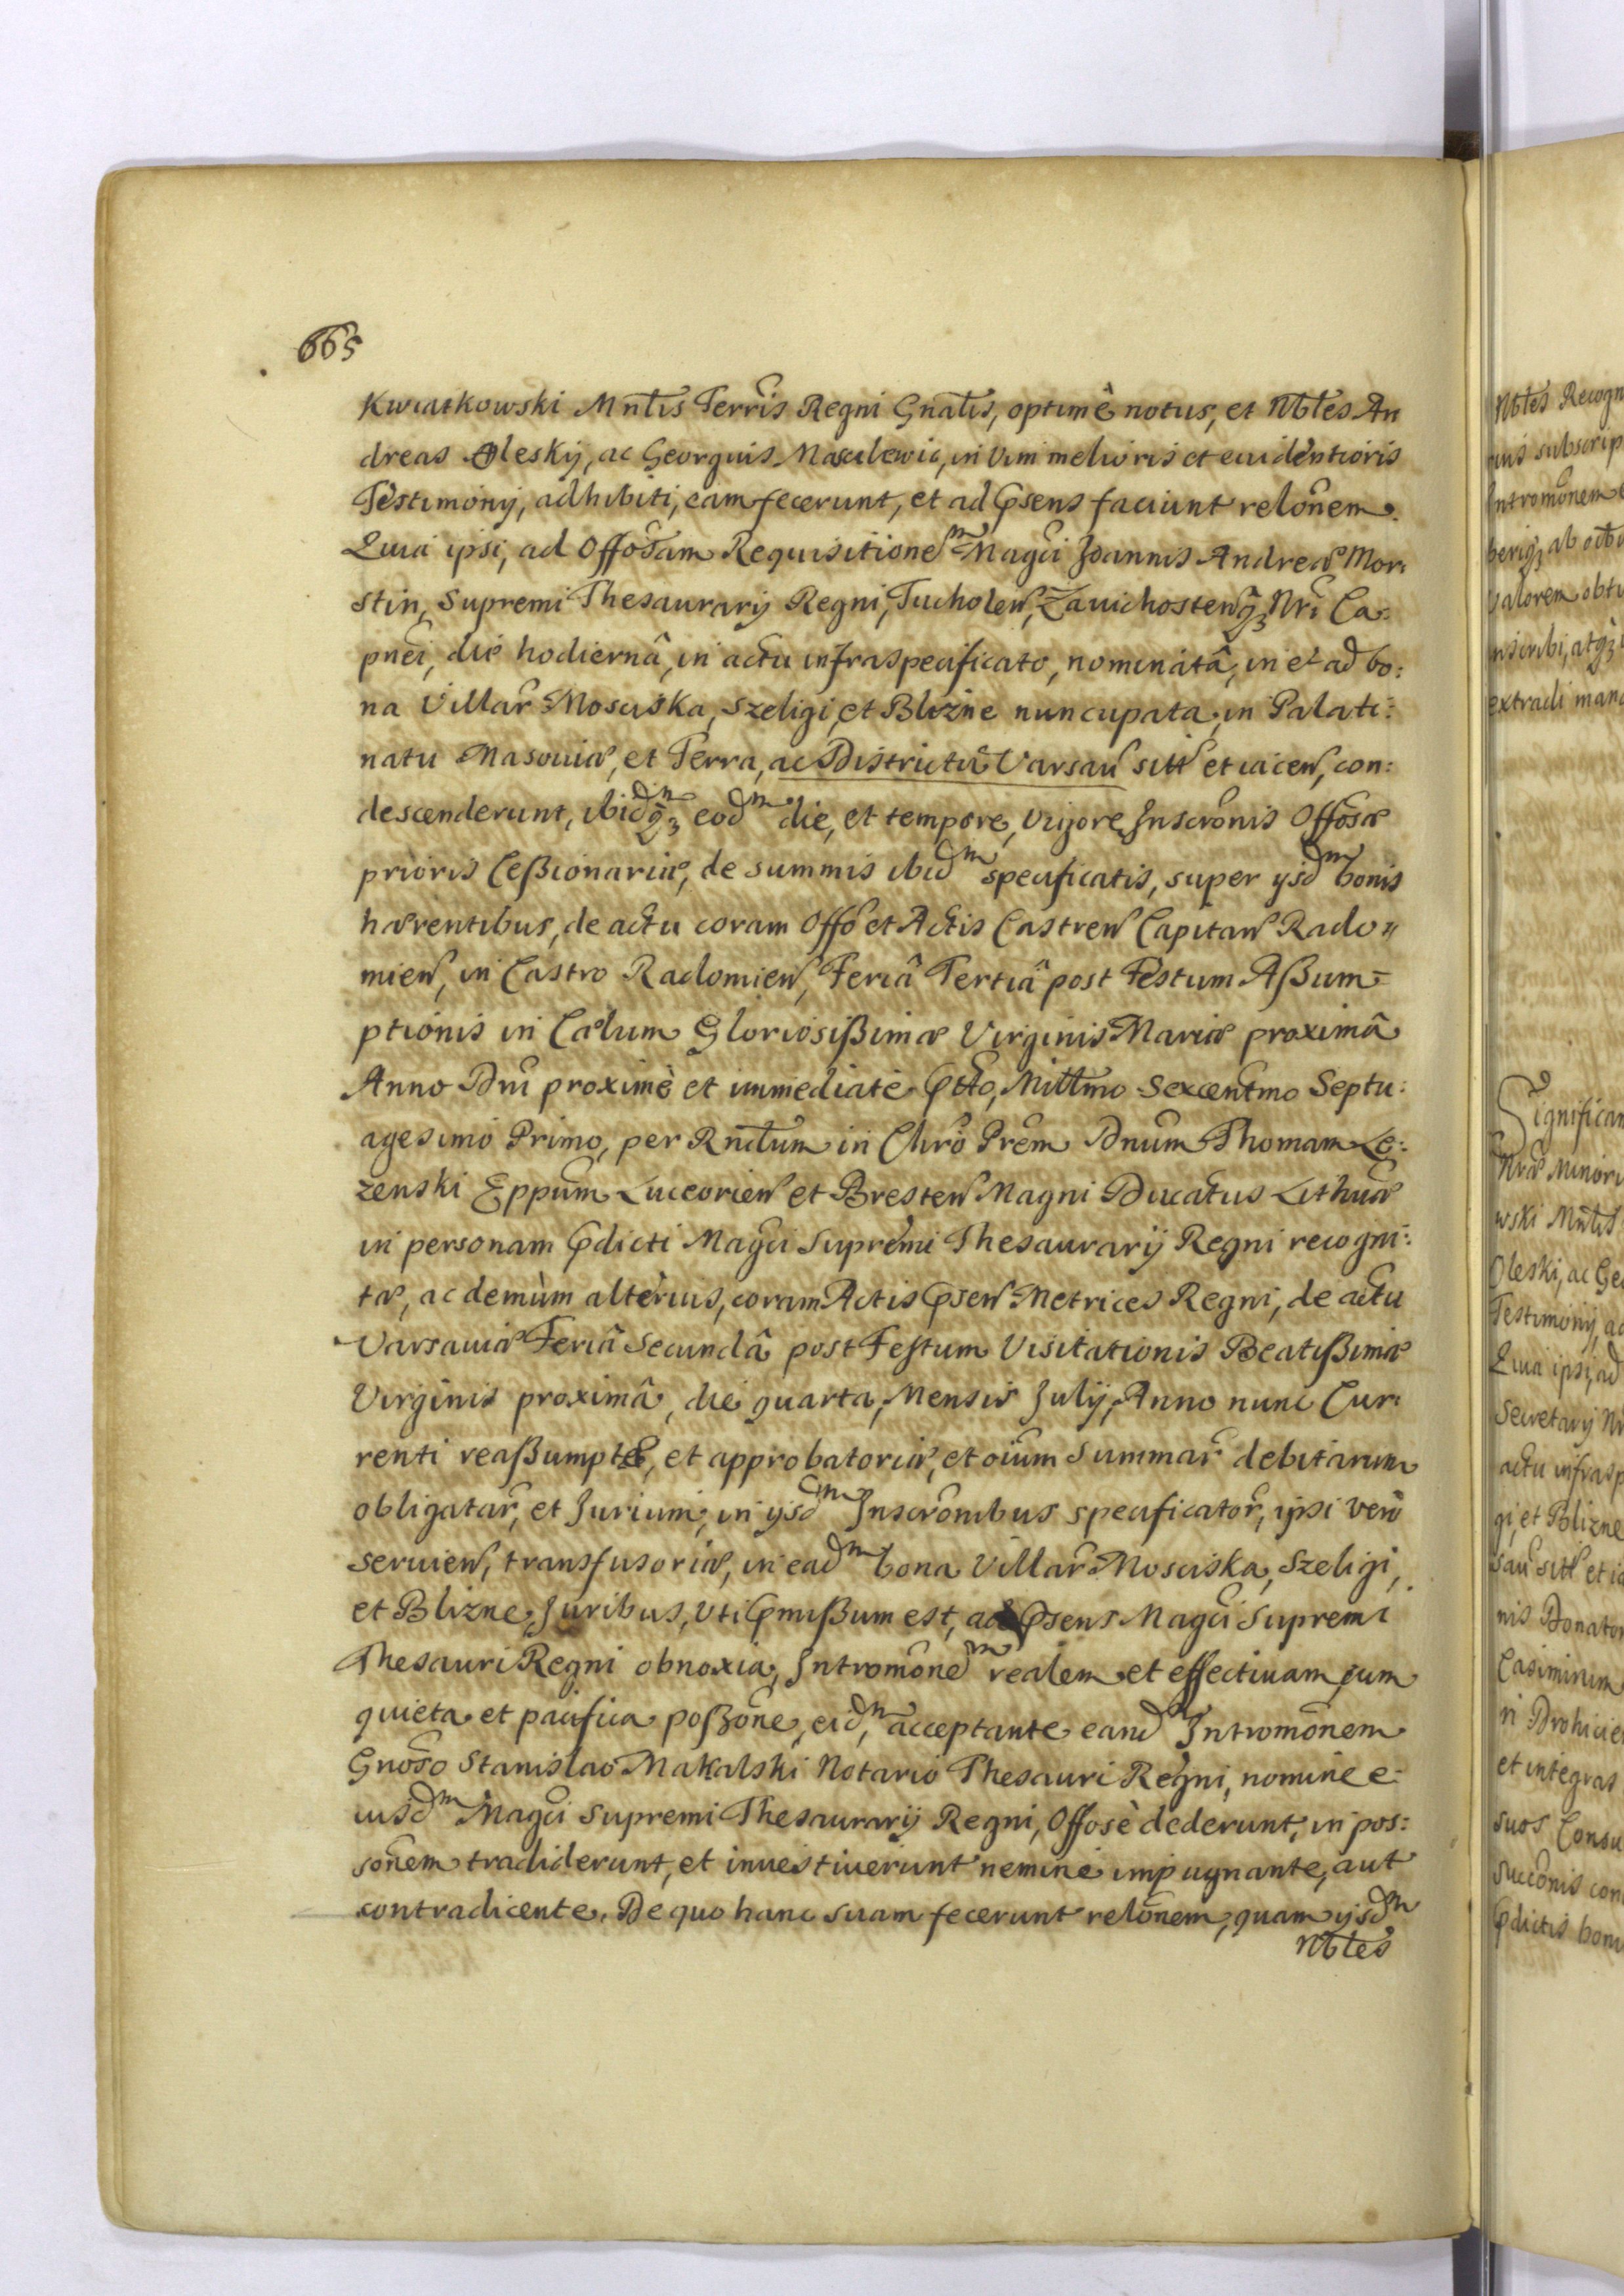 665
Kwiatkowski Mnlis Terris Regni Gnalis, optimè notus, et Nbles An
dreas Oleskij, ac Georgius Masculewic, in vim melioris et euidentioris
Testimonij, adhibiti, eam fecerunt, et ad Psens faciunt relõnem.
Quia ipsi, ad Offosam Requisitionem Magci Joannis Andreæ Mor:
stin, Supremi Thesaurarij Regni, Tucholeń, Zauichosteńq3 Nri Ca:
pnei, die hodiernâ, in actu infraspecificato, nominatâ, in et ad bo:
na Villar Mosciska, Szeligi, et Blizne nuncupata, in Palati:
natu Masouiæ, et Terra, ac Districtu Varsau sitt et iaceń, con:
descenderunt, ibidmq3 eodm die, et tempore, vigore Inscrõnis Offosæ
prioris Ceßionariæ, de summis ibidm specificatis, super ysdm bonis
hærentibus, de actu coram Offo et Actis Castreń Capitań Rado"
mień, in Castro Radomień, Feriâ Tertiâ post Festum Aßum=
ptionis in Cælum Gloriosißimæ Virginis Mariæ proximâ
Anno Dni proximè et immediatè Ptto, Millmo Sexcentmo Septu:
agesimo Primo, per Rndum in Chro Prem Dnum Thomam Le:
zenski Eppum Luceorień et Bresteń Magni Ducatus Lithuæ
in personam Pdicti Magci Supremi Thesaurarij Regni recogni:
tæ, ac demùm alterius, coram Actis Pseń Metrices Regni, de actu
Varsauiæ Feriâ Secundâ post Festum Visitationis Beatißimæ
Virginis proximâ, die quarta, Mensis Julij, Anno nunc Cur:
renti reaßumptæ, et approbatoriæ, et oium Summar debitarum
obligatar, et Jurium, in ysdm Inscrõnibus specificator, ipsi verò
seruień, transfusoriæ, in eadm bona Villar Mosciska, Szeligi,
et Blizne, Juribus, vti Pmißum est, ad Psens Magci Supremi
Thesauri Regni obnoxia, Intromõnem realem et effectiuam, cum
quieta et pacifica poßõne, eidm, acceptante eandm Intromõnem
Gnoso Stanislao Makalski Notario Thesauri Regni, nomine e:
iusdm Magci Supremi Thesaurarij Regni, Offosè dederunt, in pos:
sõnem tradiderunt, et inuestiuerunt nemine impugnante, aut
contradicente. De quo hanc suam fecerunt relõnem, quam ysdm
Nbles
Nbles Recogn
Intromõnem
valorem obtu
extradi man
Significam
Nræ Minori
wski Mnlis
Oleski, ac Ge
Testimonij, ad
Quia ipsi, ad
Secretarij Nr
actu infrasp
gi, et Blizne
sau sitt et ia
nis Donator
Casimirum
n Drohicie
et integras
suos Consu
succõnis con
Pdictis bon